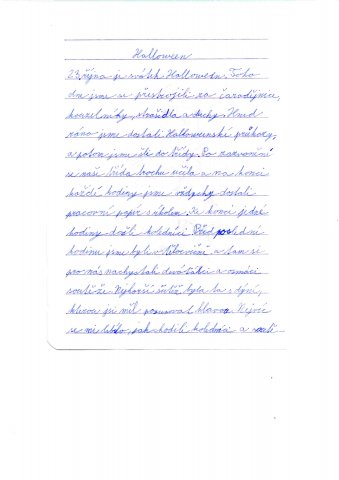 Halloween
23. října je svátek Halloweenu. Toho
dne jsme se přestrojili za čarodějnice,
kouzelníky, strašidla a duchy. Hned
ráno jsme dostali Halloweenské průkazy,
a potom jsme šli do třídy. Po zazvonění
se naše třída trochu učila a na konci
každé hodiny jsme vždycky dostali
pracovní papír s úkolem. Ke konci jedné
hodiny došli koledníci. Před poslední
hodinou jsme byli v tělocvičně a tam se
pro nás nachystali deváťáci a osmáci
soutěže. Nejhorší soutěž byla ta s dýní,
kterou jsi měl posunovat hlavou. Nejvíc
se mi líbilo, jak chodili koledníci a